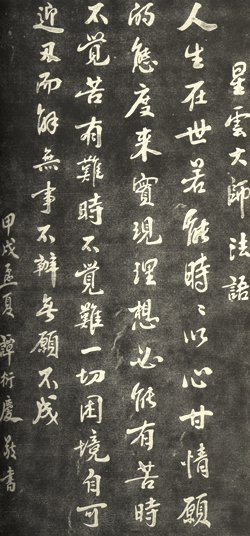 星雲大師法語
人生在世若能時時以心甘情願
的態度來實現理想必能有苦時
不覺苦有難時不覺難一切困境自可
迎刃而解無事不辦無願不成
甲戌孟夏譚衍慶敬書